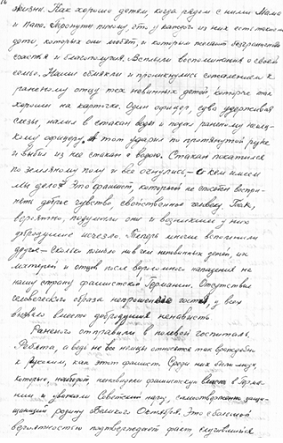 жизни. Как хорошо детям, когда рядом с ними Мама
и Папа. Наверное потому, что у каждого из них есть такие
дети, которых они любят, и которым желают безграничного
счастья и благополучия. Всплыли воспоминания о своей
семье. Наши обмякли и прониклись сожалением к
раненому отцу тех невинных детей, которые так
хороши на карточке. Один офицер, едва удерживая
слезы, налил в стакан воды и подал раненому немец-
кому офицеру. А тот ударил по протянутой руке
и выбил из нее стакан с водой. Стакан покатился
по земляному полу и все очнулись – с кем имеем
мы дело? Это фашист, который не способен воспри-
нять добрые чувства, свойственные человеку. Так,
вероятно, подумали они и возникшее у них
добродушие исчезло. Теперь многие вспомнили
другое – сколько погибло ни в чем неповинных детей, их
матерей и отцов после вероломного нападения на
нашу страну фашистской Германии. Отсутствие
человеческого образа непрошенного гостя у всех
вызвало вместо добродушия ненависть.
Раненого отправили в полевой госпиталь.
Ребята, а ведь не все немцы относятся так враждебно
к русским, как этот фашист. Среди них были люди,
которые, наоборот, ненавидели фашистскую власть в Герма-
нии и уважали Советский народ, самоотверженно защи-
щающий родину Великого Октября. Это с большой
вероятностью подтверждает факт, случившийся